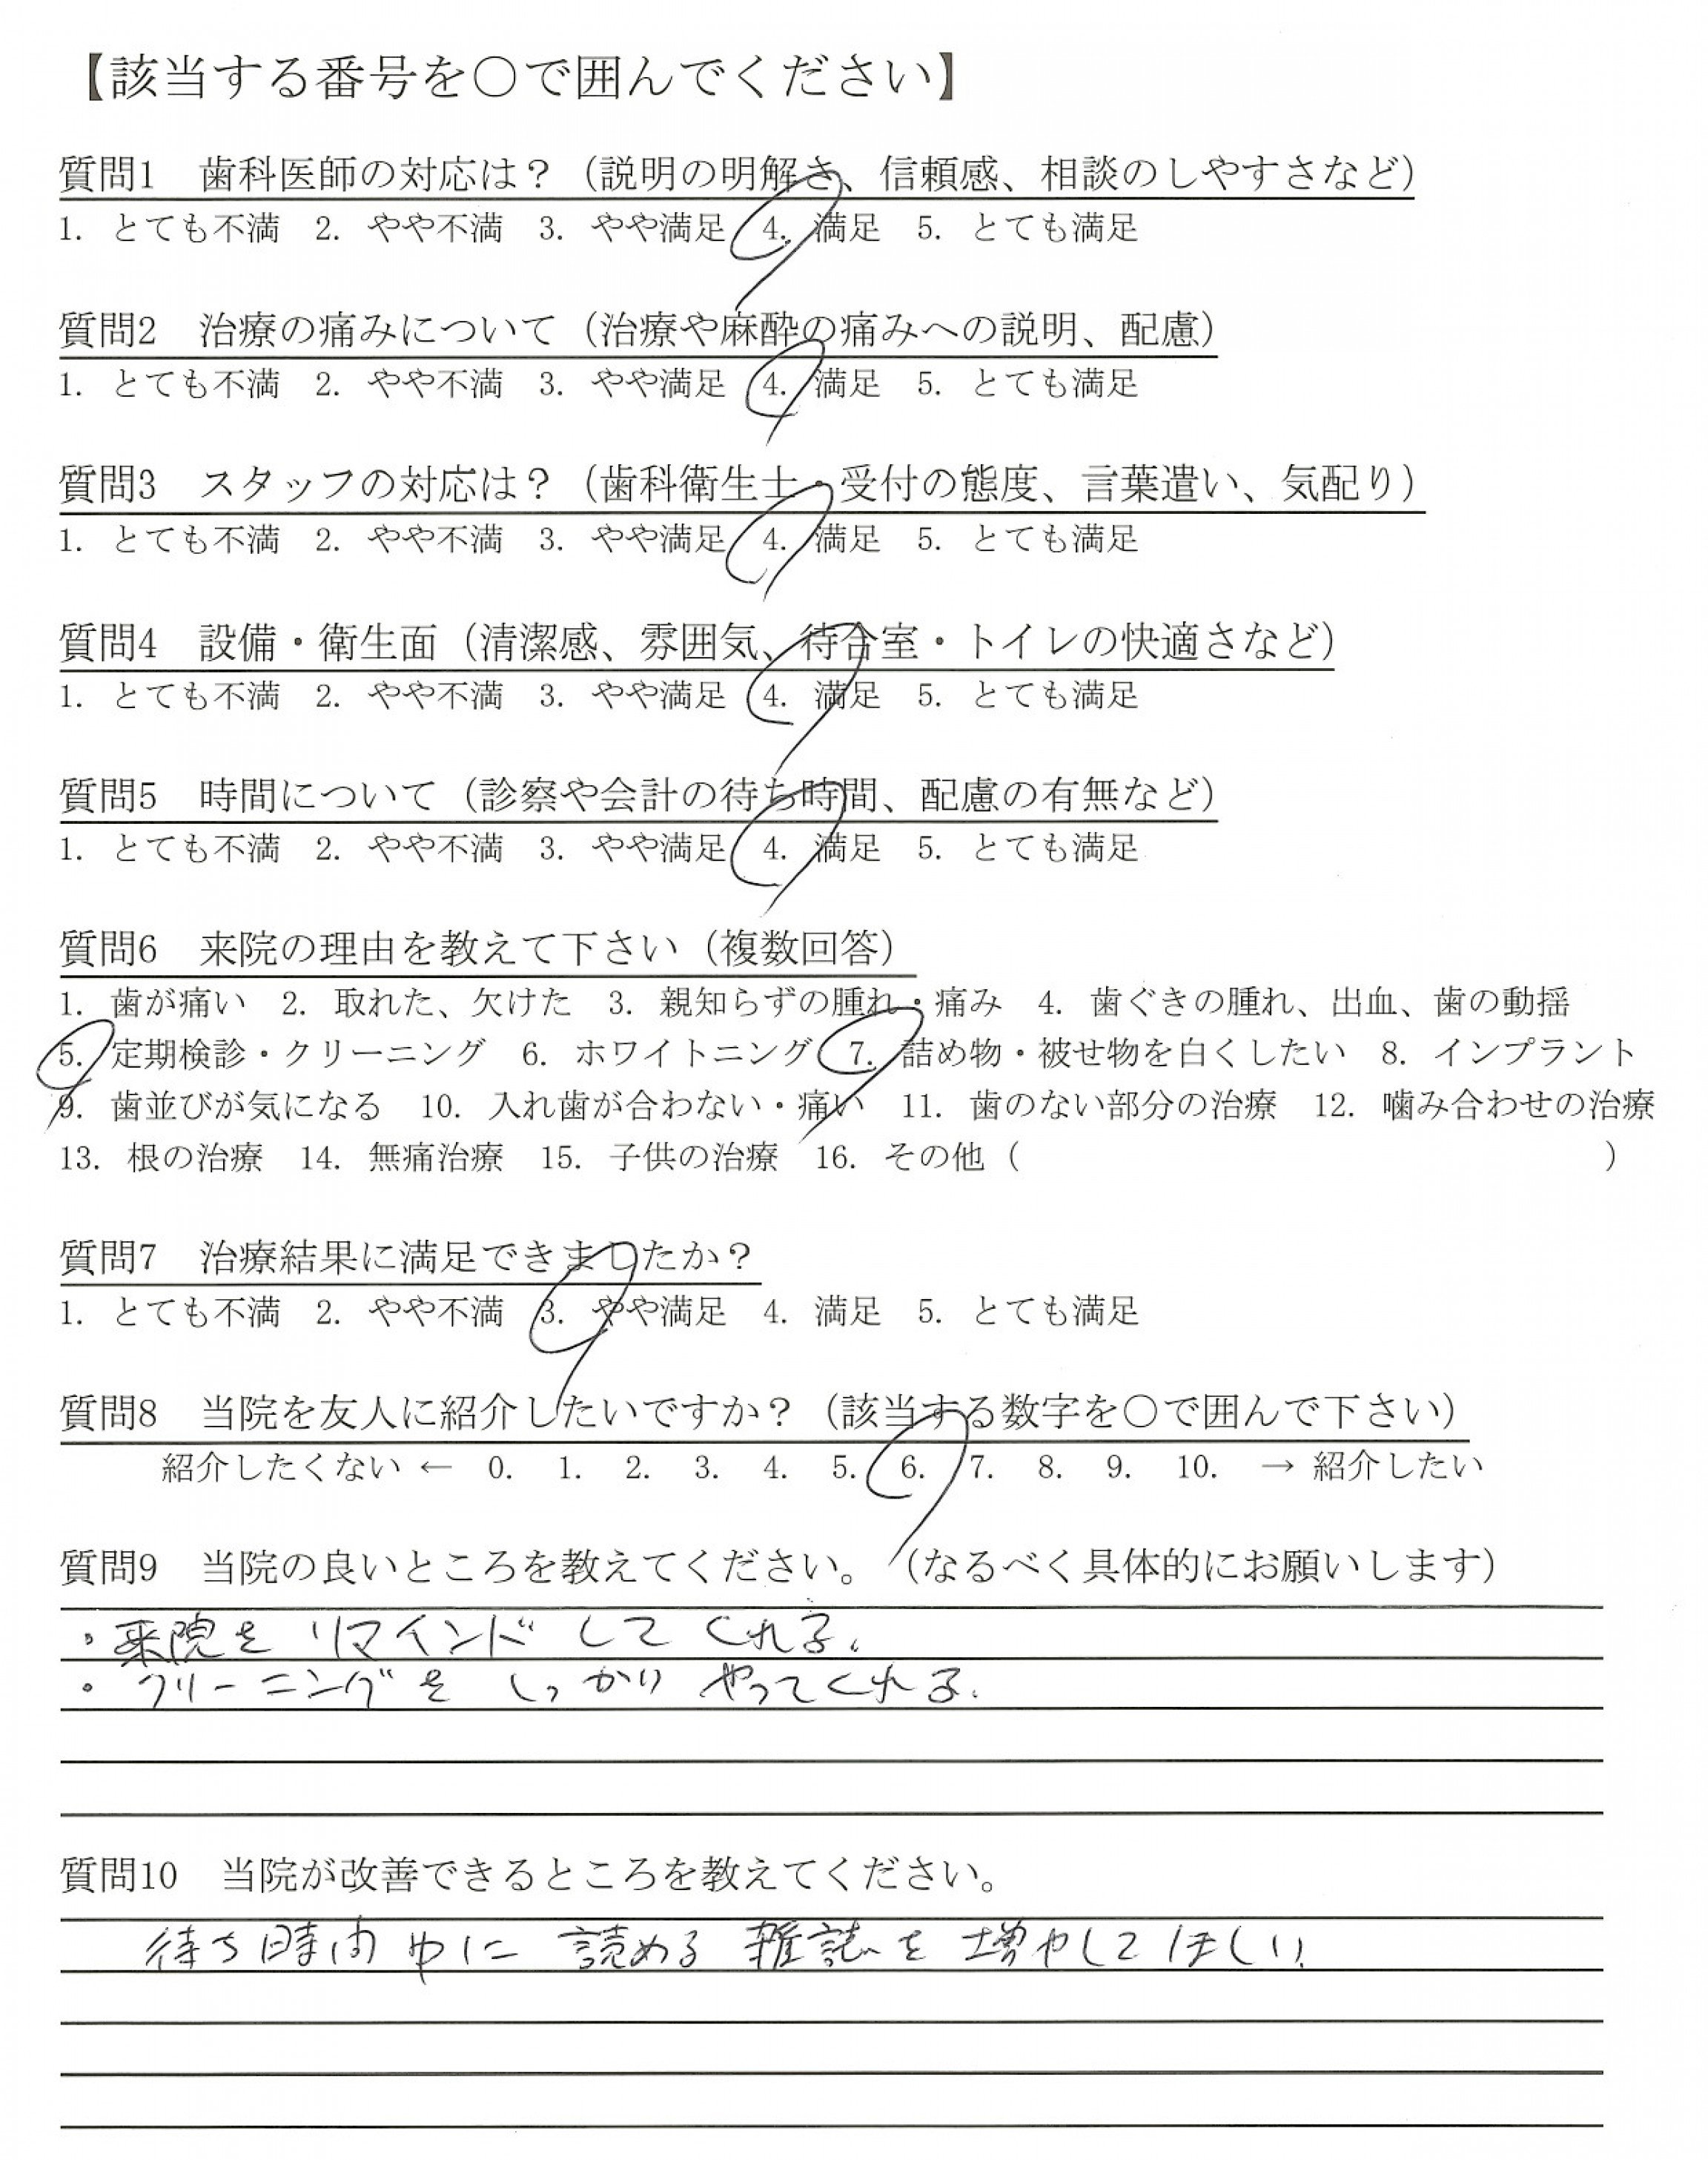 【該当する番号を○で囲んでください】
質問1　歯科医師の対応は？（説明の明解さ、信頼感、相談のしやすさなど）
1. とても不満　2. やや不満　3. やや満足　4. 満足　5. とても満足
質問2　治療の痛みについて（治療や麻酔の痛みへの説明、配慮）
1. とても不満　2. やや不満　3. やや満足　4. 満足　5. とても満足
質問3　スタッフの対応は？（歯科衛生士・受付の態度、言葉遣い、気配り）
1. とても不満　2. やや不満　3. やや満足　4. 満足　5. とても満足
質問4　設備・衛生面（清潔感、雰囲気、待合室・トイレの快適さなど）
1. とても不満　2. やや不満　3. やや満足　4. 満足　5. とても満足
質問5　時間について（診察や会計の待ち時間、配慮の有無など）
1. とても不満　2. やや不満　3. やや満足　4. 満足　5. とても満足
質問6　来院の理由を教えて下さい（複数回答）
1. 歯が痛い　2. 取れた、欠けた　3. 親知らずの腫れ・痛み　4. 歯ぐきの腫れ、出血、歯の動揺
5. 定期検診・クリーニング　6. ホワイトニング　7. 詰め物・被せ物を白くしたい　8. インプラント
9. 歯並びが気になる　10. 入れ歯が合わない・痛い　11. 歯のない部分の治療　12. 噛み合わせの治療
13. 根の治療　14. 無痛治療　15. 子供の治療　16. その他（　　　　　　　　　　）
質問7　治療結果に満足できましたか？
1. とても不満　2. やや不満　3. やや満足　4. 満足　5. とても満足
質問8　当院を友人に紹介したいですか？（該当する数字を○で囲んで下さい）
紹介したくない ← 0. 1. 2. 3. 4. 5. 6. 7. 8. 9. 10. → 紹介したい
質問9　当院の良いところを教えてください。（なるべく具体的にお願いします）
・来院を リマインド してくれる。
・クリーニングを しっかり やってくれる.
質問10　当院が改善できるところを教えてください。
待ち時間中に 読める 雑誌を 増やしてほしい.